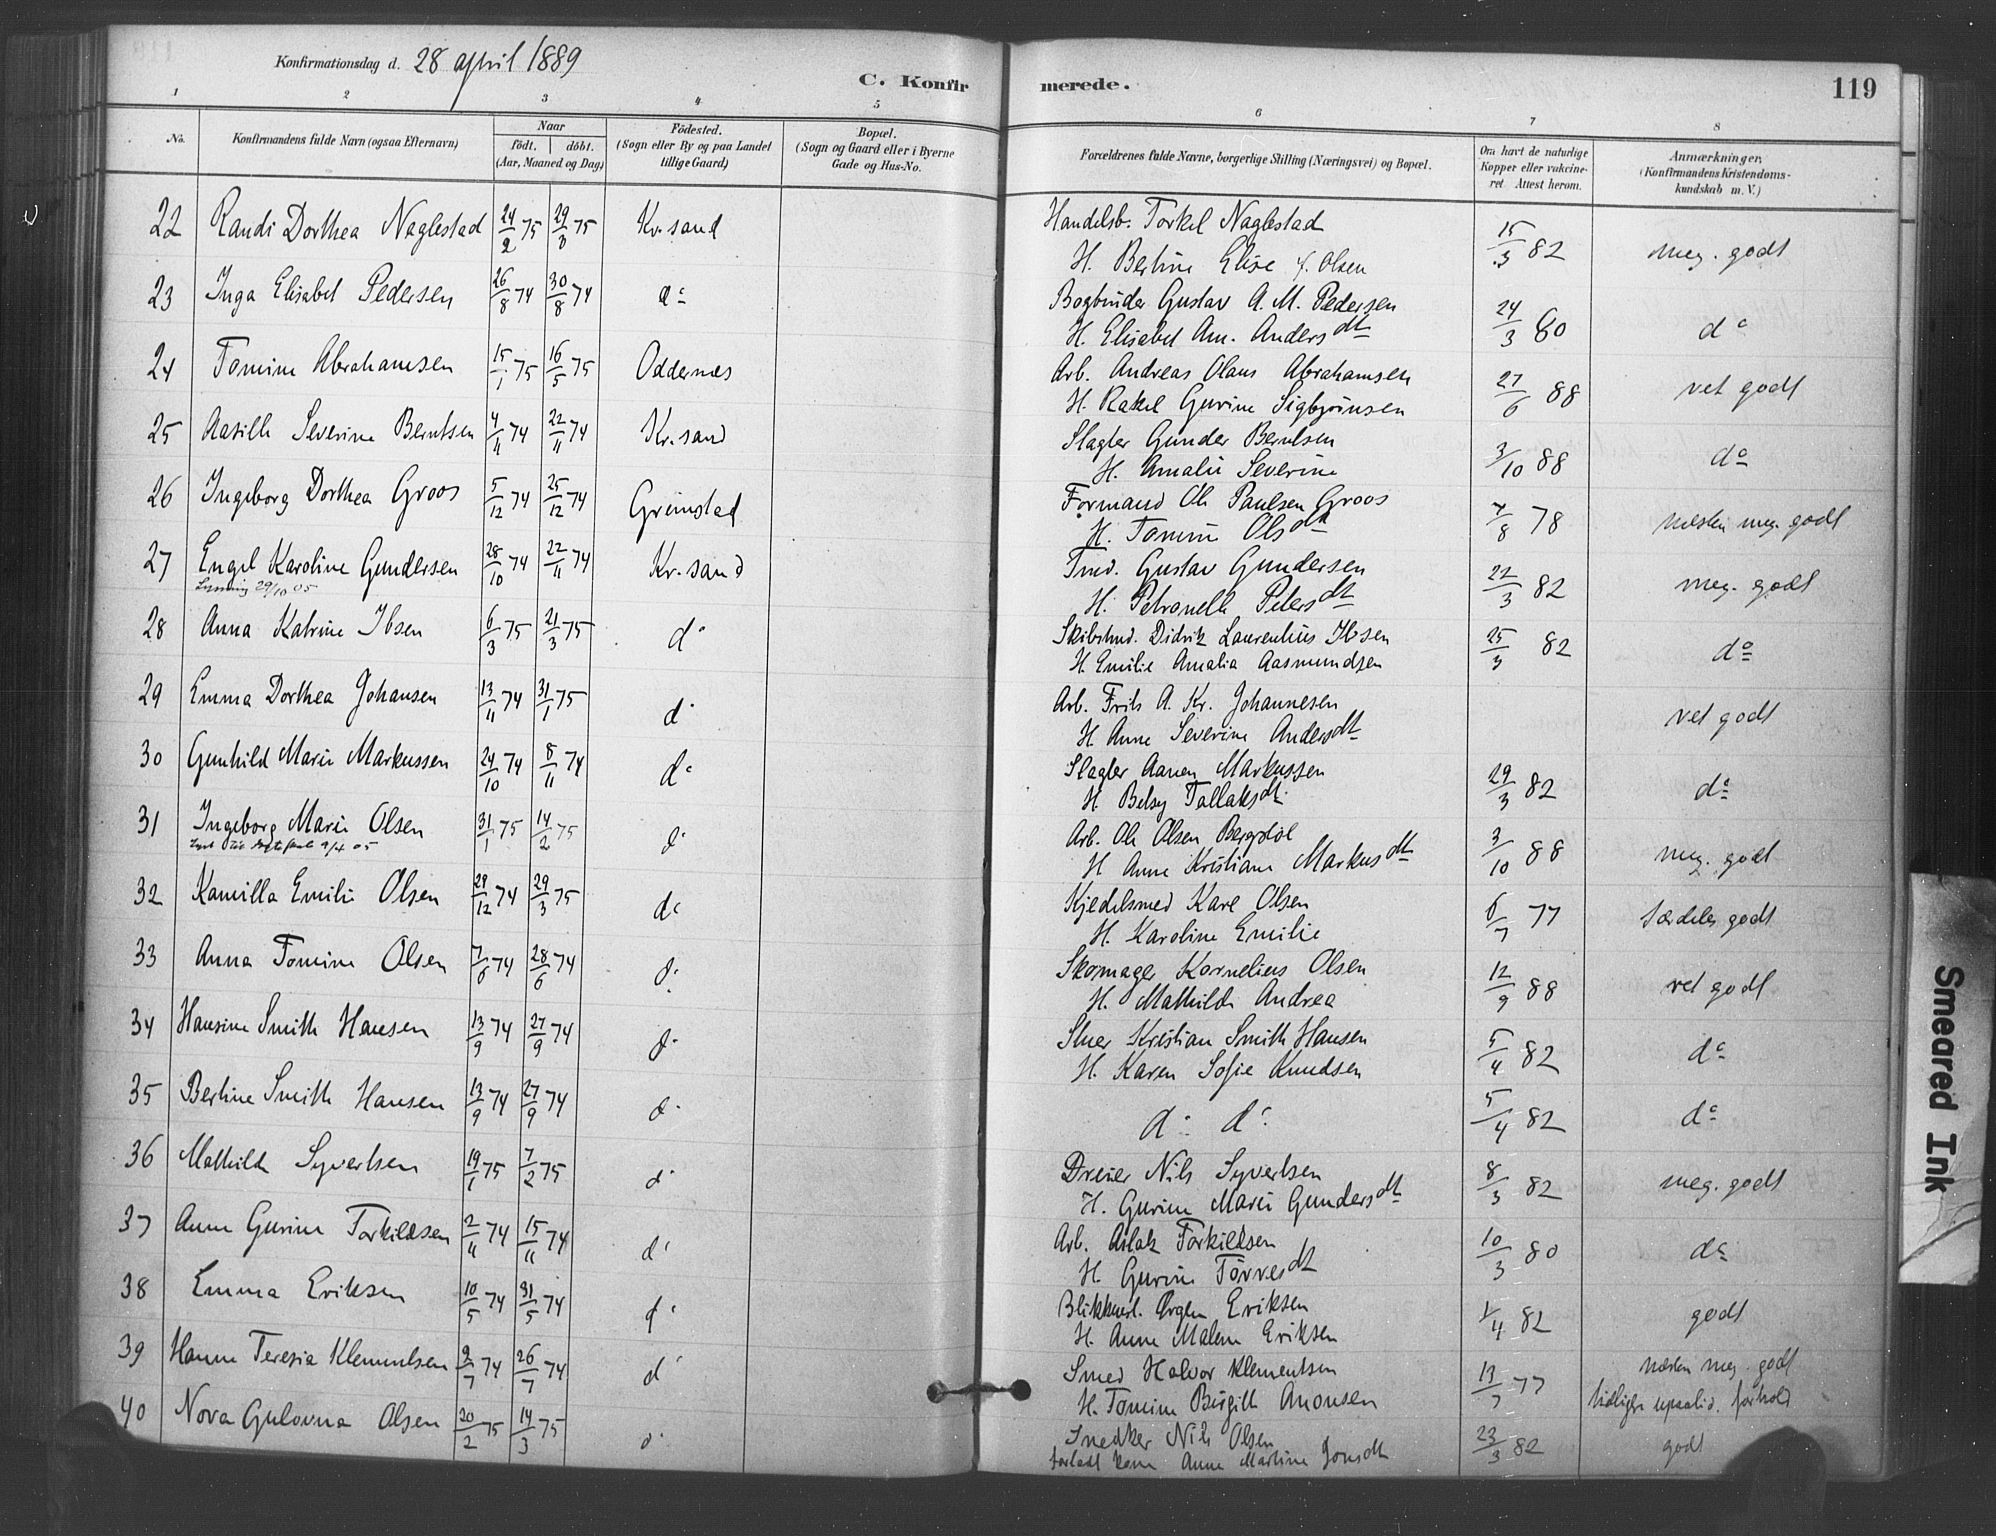 Konfirmationsdag d. 28 april 1889
C. Konfirmerede. 119
1 2 3 4 5 6 7 8
No. Konfirmandens fulde Navn (ogsaa Efternavn) Naar födt. döbt. (Aar, Maaned og Dag) Födested. (Sogn eller By og paa Landet tillige Gaard) Bopæl. (Sogn og Gaard eller i Byerne Gade og Hus-No. Forældrenes fulde Navne, borgerlige Stilling (Næringsvei) og Bopæl. Om havt de naturlige Kopper eller vakcineret Attest herom. Anmærkninger, (Konfirmandens Kristendomskundskab m. V.)
22 Randi Dorthea Naglestad 24/2 75 29/3 75 Kr.sand Handelsb. Torkel Naglestad 15/3 82 meg. godt
H. Bertine Elise f. Olsen
23 Inga Elisabet Pedersen 26/8 74 30/8 74 do Bogbinder Gustav A. M. Pedersen 24/3 80 do
H. Elisabet Am. Andersdt
24 Tomine Abrahamsen 15/1 75 16/5 75 Oddernes Arb. Andreas Olaus Abrahamsen 27/6 88 vet godt
H. Rakel Gurine Sigbjörnsen
25 Aasille Severine Berntsen 4/11 74 22/11 74 Kr.sand Slagter Gunder Berntsen 3/10 88 do
H. Amalie Severine
26 Ingeborg Dorthea Groos 5/12 74 25/12 74 Grimstad Formand Ole Paulsen Groos 7/8 78 næsten meg. godt
H. Tomine Olsdt
27 Engel Karoline Gundersen 28/10 74 22/11 74 Kr.sand Tmd. Gustav Gundersen 22/3 82 meg. godt
Lysning 29/10 05 H. Petronelle Petersdt
28 Anna Katrine Ibsen 6/3 75 21/3 75 do Skibstmd. Didrik Laurentius Ibsen 25/3 82 do
H Emilie Amalia Aasmundsen
29 Emma Dorthea Johansen 13/11 74 31/1 75 do Arb. Frits A. Kr. Johannesen vet godt
H Anne Severine Andersdt
30 Gunhild Marie Markussen 24/10 74 8/11 74 do Slagter Aanen Markussen 29/3 82 do
H. Betsy Tallaksdt
31 Ingeborg Marie Olsen 31/1 75 14/2 75 do Arb. Ole Olsen Bergstøl 3/10 88 meg. godt
9/4 05 H Anne Kristiane Markusdt
32 Kamilla Emilie Olsen 29/12 74 29/3 75 do Kjedelsmed Kare Olsen 6/7 77 særdeles godt
H. Karoline Emilie
33 Anna Tomine Olsen 7/6 74 28/6 74 do Skomager Kornelius Olsen 12/9 88 vet godt
H. Mathilde Andrea
34 Hansine Smith Hansen 13/9 74 27/9 74 do Stuer Kristian Smith Hansen 5/4 82 do
H. Karen Sofie Knudsen
35 Bertine Smith Hansen 13/9 74 27/9 74 do do do 5/4 82 do
36 Mathilde Syvertsen 19/1 75 7/2 75 do Dreier Nils Syvertsen 8/3 82 meg. godt
H. Gurine Marie Gundersdt
37 Anne Gurine Torkildsen 2/11 74 15/11 74 do Arb. Aslak Torkildsen 10/3 80 do
H. Gurine Torresdt
38 Emma Eriksen 10/5 74 31/5 74 do Blikkensl. Ørgen Eriksen 1/4 82 godt
H. Anne Malene Eriksen
39 Hanne Teresia Klemmetsen 9/7 74 26/7 74 do Smed Halvor Klementsen 13/7 77 næsten meg. godt
H. Tomine Birgitte Anonsen tidligere forhold
40 Nova Gulovna Olsen 20/2 75 14/3 75 do Snedker Nils Olsen 23/3 82 godt
forladt kone Anne Martine Jonsdt
Smeared Ink